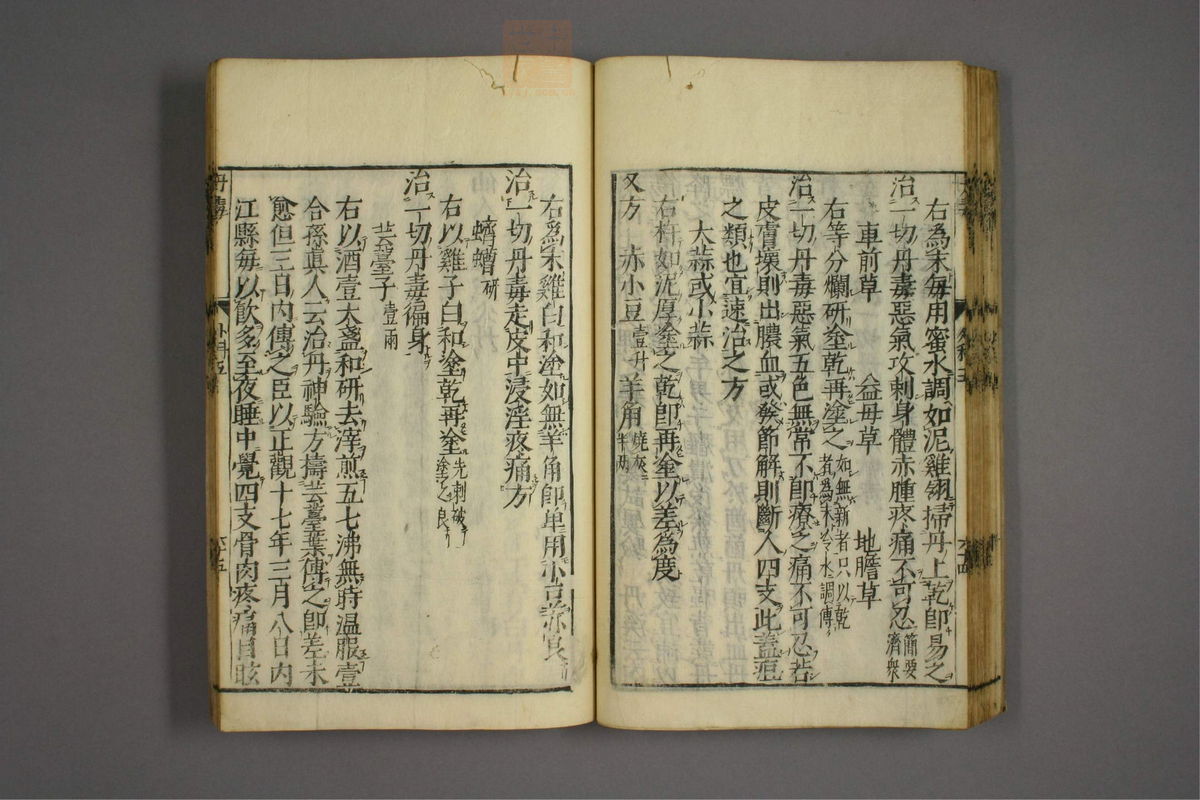 右為末毎用蜜水調如泥雞翎掃丹上乾即易之
治一切丹毒惡氣攻刺身體赤腫疼痛不可忍 簡要濟衆
車前草 益母草 地膽草
右等分爛研塗乾再塗之 如無新者只以乾者為末以水調傅
治一切丹毒惡氣五色無常不即療之痛不可忍若
皮膚壞則出膿血或發節解則斷人四支此蓋疽
之類也宜速治之方
大蒜或小蒜
右杵如泥厚塗之乾即再塗以差為度
又方 赤小豆 壹升 羊角 燒灰半兩
右為末雞白和塗如無羊角即單用小豆亦良
治一切丹毒走皮中浸淫疼痛方
蠐螬 研
右以雞子白和塗乾再塗 先刺破塗之良
治一切丹毒徧身
芸薹子 壹兩
右以酒壹大盞和研去滓煎五七沸無時温服壹
合孫真人云治丹神驗方擣芸薹葉傅之即差未
愈但三日內傅之臣以正觀十七年三月八日內
江縣每以飲多至夜睡中覺四支骨肉疼痛目眩